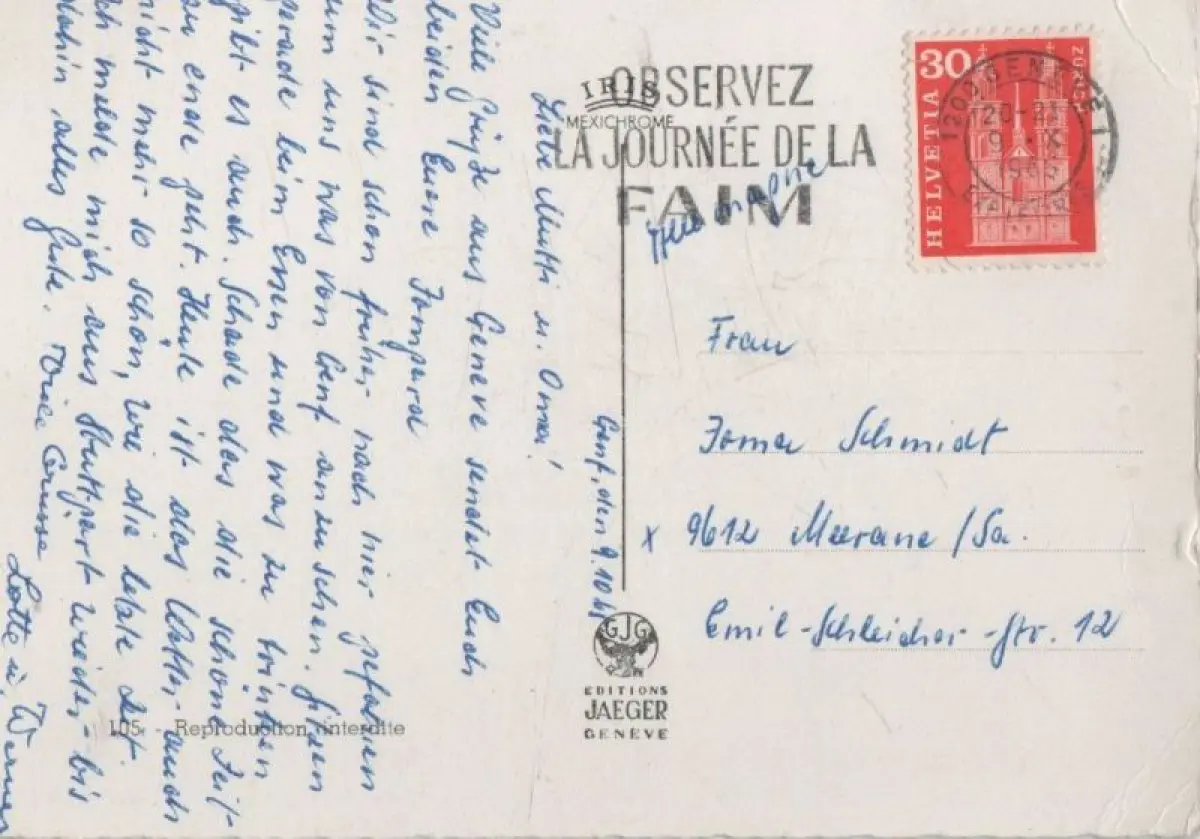 IRIS
MEXICHROME
OBSERVEZ
LA JOURNÉE DE LA
FAIM
30
HELVETIA
ZÜRICH
1200 GENÈVE
20-21
9. X
Genf, den 9.10.65
Liebe Mutti u. Oma!
Viele Grüße aus Genève sendet Euch
beiden Euere
Wir sind schon früher nach hier gefahren
um uns was von Genf anzusehen.
gerade beim Essen und was zu trinken
gibt es auch. Schade das die schöne Zeit
zu ende geht. Heute ist das Wetter auch
nicht mehr so schön, wie die letzte Zeit.
Ich melde mich aus Stuttgart wieder - bis
dahin alles Gute. Viele Grüsse
Lotte u. Werner
Frau
Schmidt
x 9612 Meerane/Sa.
Emil-Schleicher-Str. 12
GJG
EDITIONS
JAEGER
GENÈVE
105 - Reproduction interdite